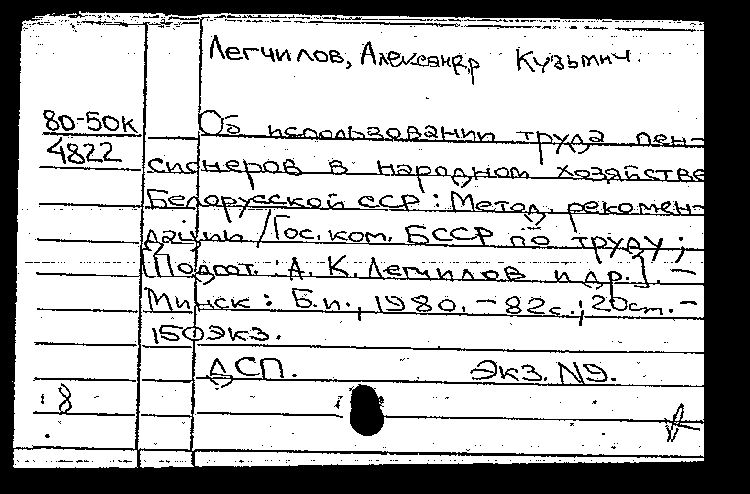 Легчилов, Александр Кузьмич.
80-50к Об использовании труда пен-
4822 сионеров в народном хозяйстве
Белорусской ССР : Метод. рекомен-
дации / Гос. ком. БССР по труду ;
[Подгот. : А. К. Легчилов и др.]. –
Минск : Б.и., 1980. – 82с. ; 20см. –
150экз.
ДСП. Экз. N9.
8